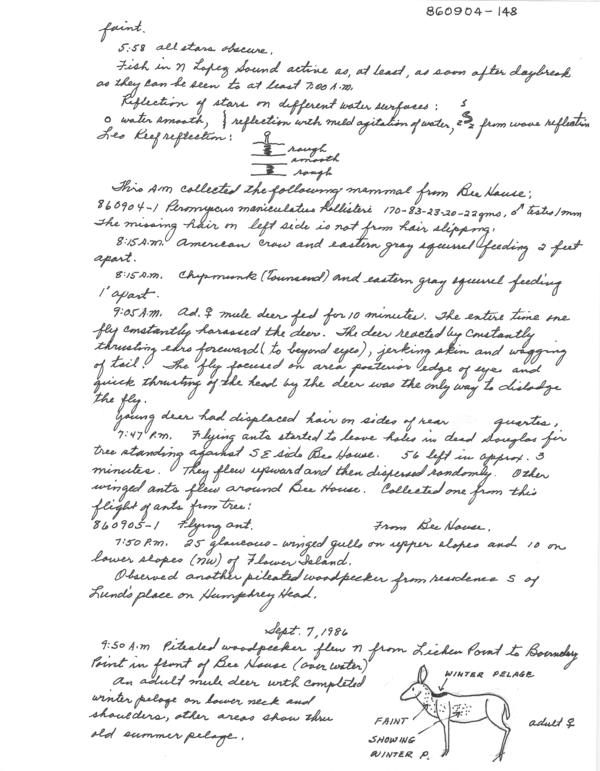 860904-148
faint.
5:58 all stars obscure.
Fish in N Lopez Sound active as, at least, as soon after daybreak
as they can be seen to at least 7:00 A.M.
Reflection of stars on different water surfaces:
o water smooth, } reflection with mild agitation of water, from wave reflection
Leo Reef reflection:
rough
smooth
rough
This A.M collected the following mammal from Bee House:
860904-1 Peromyscus maniculatus hollisteri 170-83-23-20-22gms, ♂ testes 1mm
The missing hair on left side is not from hair slipping.
8:15 A.M. American crow and eastern gray squirrel feeding 2 feet
apart.
8:15 A.M. Chipmunk (Townsend) and eastern gray squirrel feeding
1' apart.
9:05 A.M. Ad. ♀ mule deer fed for 10 minutes. The entire time one
fly constantly harassed the deer. The deer reacted by constantly
thrusting ears foreward (to beyond eyes), jerking skin and wagging
of tail. The fly focused on area posterior edge of eye and
quick thrusting of the head by the deer was the only way to dislodge
the fly.
Young deer had displaced hair on sides of rear quarters,
7:47 P.M. Flying ants started to leave holes in dead Douglas fir
tree standing against SE side Bee House. 56 left in approx. 3
minutes. They flew upward and then dispersed randomly. Other
winged ants flew around Bee House. Collected one from this
flight of ants from tree:
860905-1 Flying ant. From Bee House.
7:50 P.M. 25 glaucous-winged gulls on upper slopes and 10 on
lower slopes (NW) of Flower Island.
Observed another pileated woodpecker from residence S of
Lund's place on Humphrey Head.
Sept. 7, 1986
9:50 A.M Pileated woodpecker flew N from Lichen Point to Boundary
Point in front of Bee House (over water)
An adult mule deer with completed
winter pelage on lower neck and
shoulders, other areas show thru
old summer pelage.
WINTER PELAGE
FAINT
SHOWING
WINTER P.
adult ♀